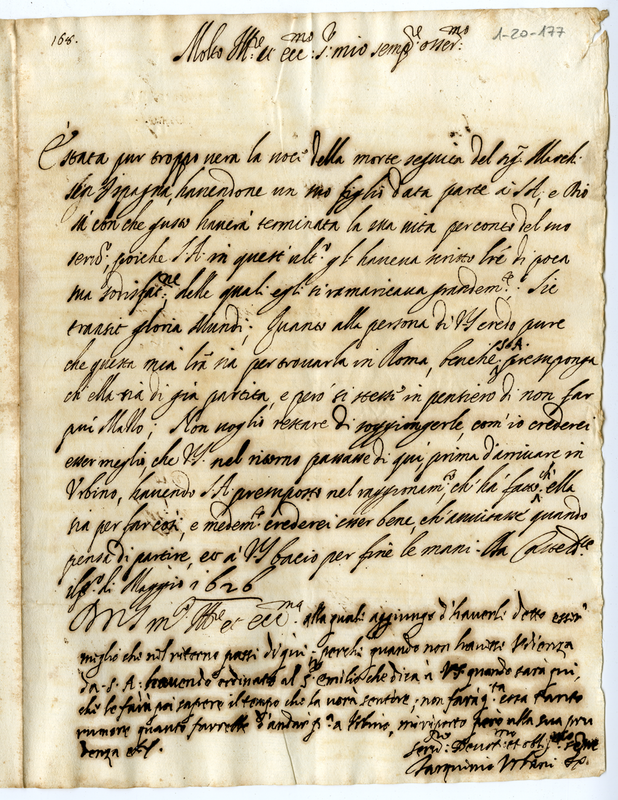 168.
1-20-177
Molto Ill.re et ecc.mo s.r mio semp.re osser.mo
È stata pur troppo vera la voce della morte seguita del sig. March.
in Spagna, havendone un suo figlio data parte a S.A.; e Dio
sà con che gusto haverà terminata la sua vita per conto del suo
serv.o, poiche S.A. in quest' ult.o gl' haveva scritto lre di poca
sua sodisfat.ne, delle quali egli si ramaricava grandem.te. Sic
transit gloria Mundi; Quanto alla persona di VS credo pure
che questa mia lra sia per trovarla in Roma, benche S.A. presuponga
ch' ella sia di già partita, e però si stesse in pensiero di non far
più Motto; Non voglio restare di soggiongerle com' io crederei
esser meglio, che VS. nel ritorno passasse di quì prima d'arrivare in
Urbino, havendo S.A. presuposto nel raggionam.to ch' hà fatto, ch' ella
sia per far così, e medem.te crederei esser bene, ch' avvisasse quando
pensa di partire, et a' VS bacio per fine le mani. Da Casteld.te
il di Maggio 1626
DVS m.to Ill.re et ecc.ma alla quale aggiungo d'haverli detto esser
meglio che nel ritorno passi di qui, perche quando non havesse Udienza
da S.A. havendo ordinato al S.r Emilio che dica à VS quando sarà quì,
che le farà poi sapere il tempo che la vorà sentire; non farà q.ta cosa tanto
rumore quanto farrebbe d'andar p.a a Urbino, mi riporto però alla sua pru
denza etc.
Ser.re Devot.mo et obl.mo sempre
Tarquinio Urbani